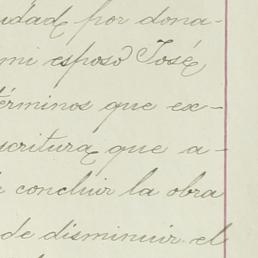 idad por dona-
mi esposo José
términos que ex-
scritura que a-
concluir la obra
de disminuir el